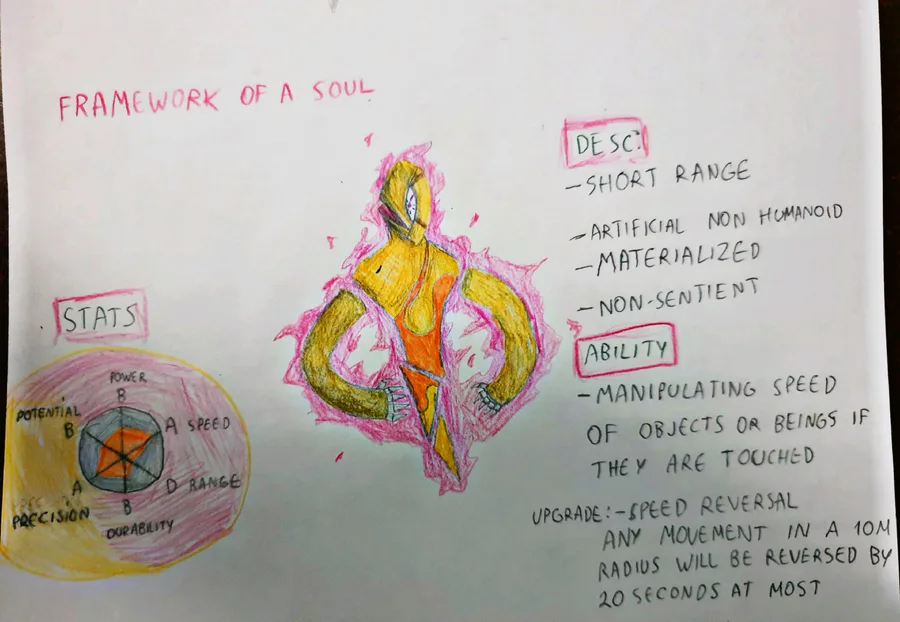 FRAMEWORK OF A SOUL
DESC:
-SHORT RANGE
-ARTIFICIAL NON HUMANOID
-MATERIALIZED
-NON-SENTIENT
ABILITY
-MANIPULATING SPEED
OF OBJECTS OR BEINGS IF
THEY ARE TOUCHED
UPGRADE:-SPEED REVERSAL
ANY MOVEMENT IN A 10M
RADIUS WILL BE REVERSED BY
20 SECONDS AT MOST
STATS
POWER
B
A SPEED
D RANGE
B
DURABILITY
A
PRECISION
POTENTIAL
B